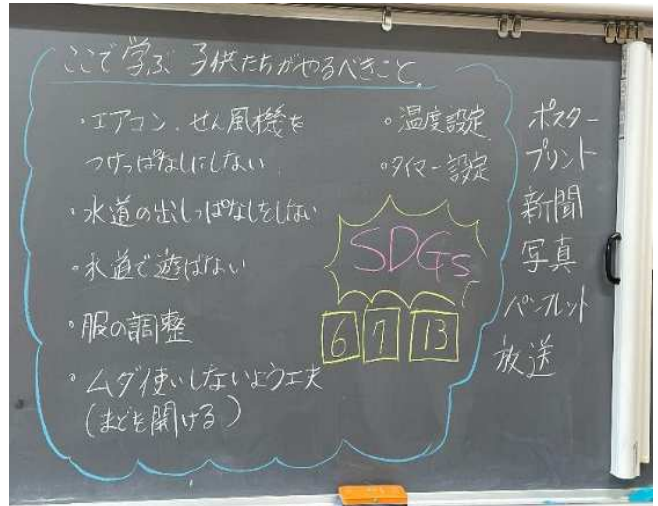 ここで学ぶ 子供たちがやるべきこと。
・エアコン、せん風機を
つけっぱなしにしない
・水道の出しっぱなしをしない
・水道で遊ばない
・服の調整
・ムダ使いしないよう工夫
(まどを開ける)
・温度設定
・タイマー設定
SDGs
6 7 13
ポスター
プリント
新聞
写真
パンフレット
放送